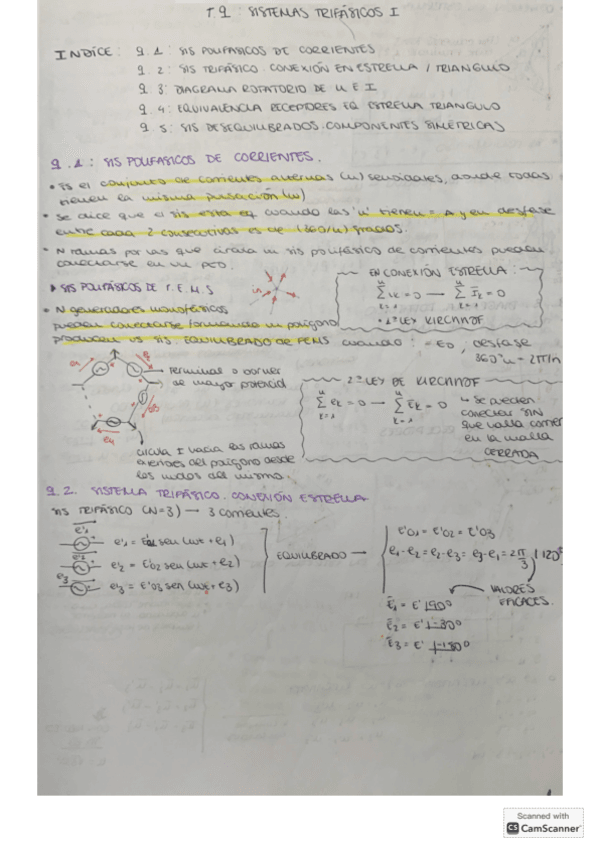 T.9: SISTEMAS TRIFÁSICOS I
INDICE: 9.1: SIS POLIFASICOS DE CORRIENTES
9.2: SIS TRIFÁSICO CONEXIÓN EN ESTRELLA / TRIANGULO
9.3: DIAGRAMA ROTATORIO DE U E I
9.4: EQUIVALENCIA RECEPTORES EQ ESTRELLA TRIANGULO
9.5: SIS DESEQUILIBRADOS. COMPONENTES SIMÉTRICAS
9.1: SIS POLIFASICOS DE CORRIENTES.
• Es el conjunto de corrientes alternas (n) senoidales, donde todas
tienen la misma pulsación (w)
• Se dice que el sis esta eq cuando las 'n' tienen = A y en desfase
entre cada 2 consecutivas es de (360/n) grados.
• N ramas por las que circula un sis polifásico de corrientes pueden
conectarse en un
▸ SIS POLIFÁSICOS DE F.E.M.S
• N generadores monofásicos
pueden conectarse formando un polígono
producen sis. EQUILIBRADO DE FEMS cuando: = E0, desfase
360°/n = 2π/n
EN CONEXIÓN ESTRELLA:
n ∑ k=1 ik = 0 → n ∑ k=1 Īk = 0
• 1ª LEY KIRCHHOF
Terminal o borner
de mayor potencial
2ª LEY DE KIRCHHOF
n ∑ k=1 ek = 0 → n ∑ k=1 Ēk = 0
↳ Se pueden
conectar SIN
que
en la malla
CERRADA
circula I hacia las ramas
exteriores del polígono desde
los nudos del mismo.
9.2. SISTEMA TRIFÁSICO. CONEXIÓN ESTRELLA
SIS TRIFÁSICO (N=3) → 3 corrientes
e'1 = E'01 sen (wt + φ1)
e'2 = E'02 sen (wt + φ2)
e'3 = E'03 sen (wt + φ3)
EQUILIBRADO →
E'01 = E'02 = E'03
φ1 - φ2 = φ2 - φ3 = φ3 - φ1 = 2π/3 (120°
VALORES
EFICACES.
Ē1 = E' |90°
Ē2 = E' |-30°
Ē3 = E' |-150°
Scanned with
CS CamScanner